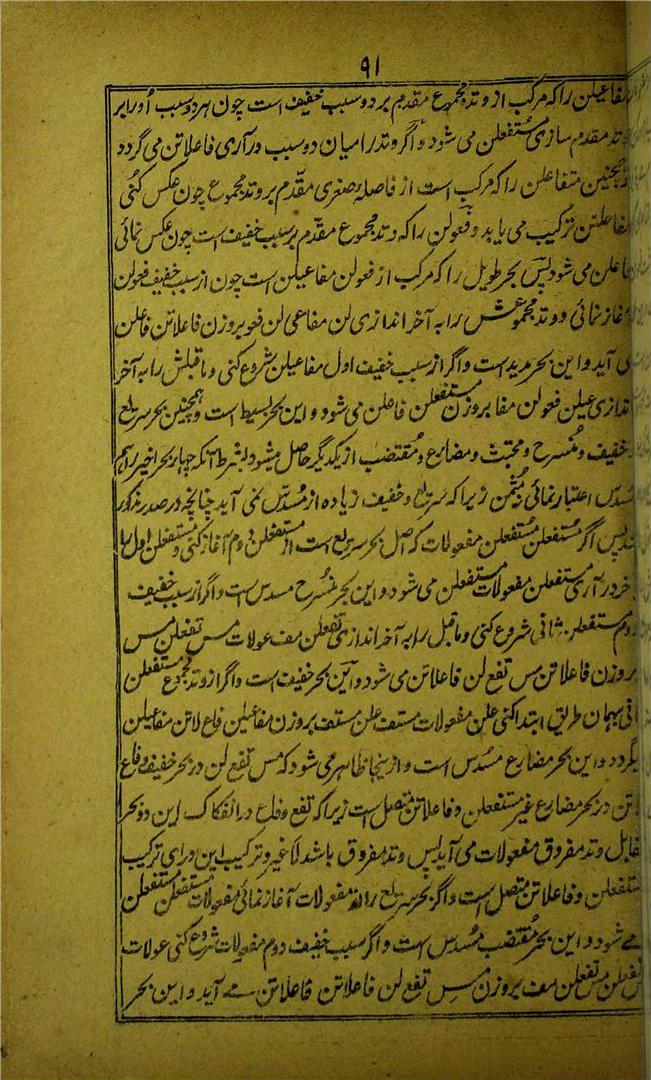 ۹۱
مفاعیلن را که مرکب از وتد مجموع مقدم بر دو سبب خفیف است چون هر دو سبب او را بر
وتد مقدم سازی مستفعلن می شود و اگر وتد را میان دو سبب در آری فاعلاتن می گردد
و همچنین متفاعلن را که مرکب است از فاصلۂ صغری مقدّم بر وتد مجموع چون عکس کنی
مفاعلتن ترکیب می یابد و فعولن را که وتد مجموع مقدّم بر سبب خفیف است چون عکس نمائی
فاعلن می شود پس بحر طویل را که مرکب از فعولن مفاعیلن است چون از سبب خفیف فعولن
آغاز نمائی و وتد مجموعش را به آخر اندازی لن مفاعی لن فعو بر وزن فاعلاتن فاعلن
می آید و این بحر مدید است و اگر از سبب خفیف اول مفاعیلن شروع کنی و ماقبلش را به آخر
اندازی عیلن فعولن مفا بر وزن مستفعلن فاعلن می شود و این بحر بسیط است و همچنین بحر سریع
و خفیف و مُنسرح و مجتث و مضارع و مُقتضب از یکدیگر حاصل میشود بشرط آنکه چهار بحر اخیر را هم
مُسدّس اعتبار نمائی نه مُثمن زیرا که سریع و خفیف زیاده از مُسدّس نمی آید چنانچه در صدر مذکور
شد پس اگر مُستفعلن مُستفعلن مفعولات که اصل بحر سریع است از مستفعلن دوم آغاز کنی و مستفعلن اول را
بآخر در آری مستفعلن مفعولات مستفعلن می شود و این بحر مُنسرح مسدس است و اگر از سبب خفیف
دوم مستفعلن ثانی شروع کنی و ماقبل را به آخر اندازی تفعلن مف عولات مس تفعلن مس
بر وزن فاعلاتن مس تفع لن فاعلاتن می شود و این بحر خفیف است و اگر از وتد مجموع مستفعلن
ثانی بهمان طریق ابتدا کنی علن مفعولات مستف علن مستف بر وزن مفاعیلن فاع لاتن مفاعیلن
میگردد و این بحر مضارع مسُدس است و از ینجا ظاهر می شود که مس تفع لن در بحر خفیف و فاع
لاتن در بحر مضارع غیر مستفعلن و فاعلاتن متصل است زیرا که تفع و فاع در انفکاک این دو بحر
مقابل وتد مفروق مفعولات می آید پس وتد مفروق باشد لاغیر و ترکیب این ورای ترکیب
مستفعلن و فاعلاتن متصل است و اگر بحر سریع را از مفعولات آغاز نمائی مفعولات مستفعلن مستفعلن
مے شود و این بحر مُقتضب مسُدس است و اگر سبب خفیف دوم مفعولات شروع کنی عولات
مس تفعلن مس تفعلن مف بر وزن مس تفع لن فاعلاتن فاعلاتن مے آید و این بحر